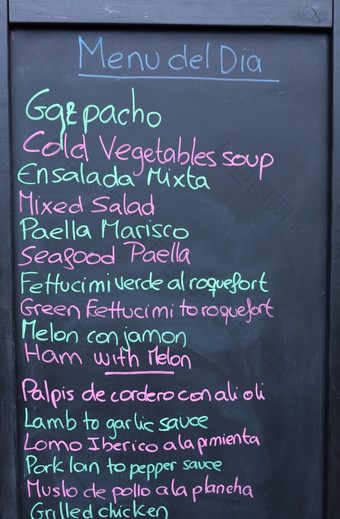 Menu del Dia
Gazpacho
Cold Vegetables soup
Ensalada Mixta
Mixed Salad
Paella Marisco
Seagood Paella
Fettucimi verde al roquefort
Green Fettucimi to roquefort
Melon con jamon
Ham with Melon
Palpis de cordero con ali oli
Lamb to garlic sauce
Lomo Iberico a la pimienta
Pork loin to pepper sauce
Muslo de pollo a la plancha
Grilled chicken